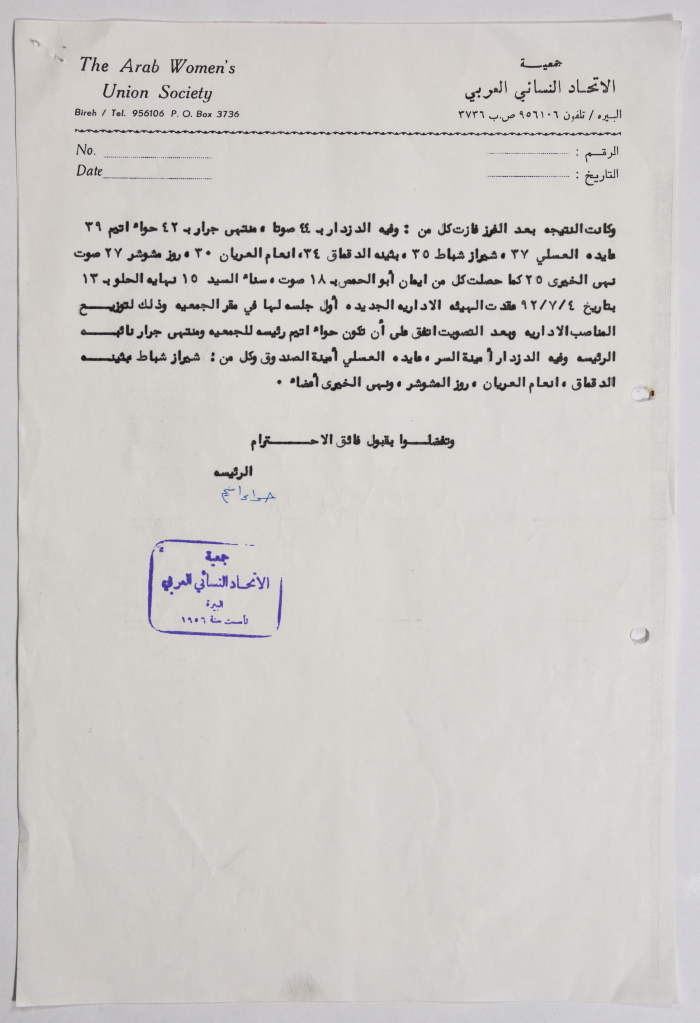 The Arab Women's
Union Society
Bireh / Tel. 956106 P. O. Box 3736
جمعيــة
الاتحـاد النسائي العربي
البيره / تلفون ٩٥٦١٠٦ ص.ب ٣٧٣٦
No.
Date
الرقــم :
التاريخ :
وكانت النتيجه بعد الفرز فازت كل من : وفيه الدزدار بـ ٤٤ صوتا ، منتهى جرار بـ ٤٢ حواء اتيم ٣٩
عايده العسلي ٣٧ ، شيراز شباط ٣٥ ، بثينه الدقماق ٣٤، انعام العريان ٣٠ ، روز مشوشر ٢٧ صوت
نهى الخيرى ٢٥ كما حصلت كل من ايمان أبو الحمص بـ ١٨ صوت ، سناء السيد ١٥ نهايه الحلو بـ ١٣
بتاريخ ٩٢/٧/٤ عقدت الهيئه الاداريه الجديده أول جلسه لها في مقر الجمعيه وذلك لتوزيــع
المناصب الاداريه وبعد التصويت اتفق على أن تكون حواء اتيم رئيسه للجمعيه ومنتهى جرار نائبــه
الرئيسه وفيه الدزدار أمينة السر ، عايده العسلي أمينة الصندوق وكل من : شيراز شباط ، بثينــه
الدقماق ، انعام العريان ، روز المشوشر ، ونهى الخيرى أعضاء ٠
وتفضلــوا بقبول فائق الاحــــترام
الرئيسه
حواء اتيم
جمعية
الاتحاد النسائي العربي
البيرة
تأسست سنة ١٩٥٦